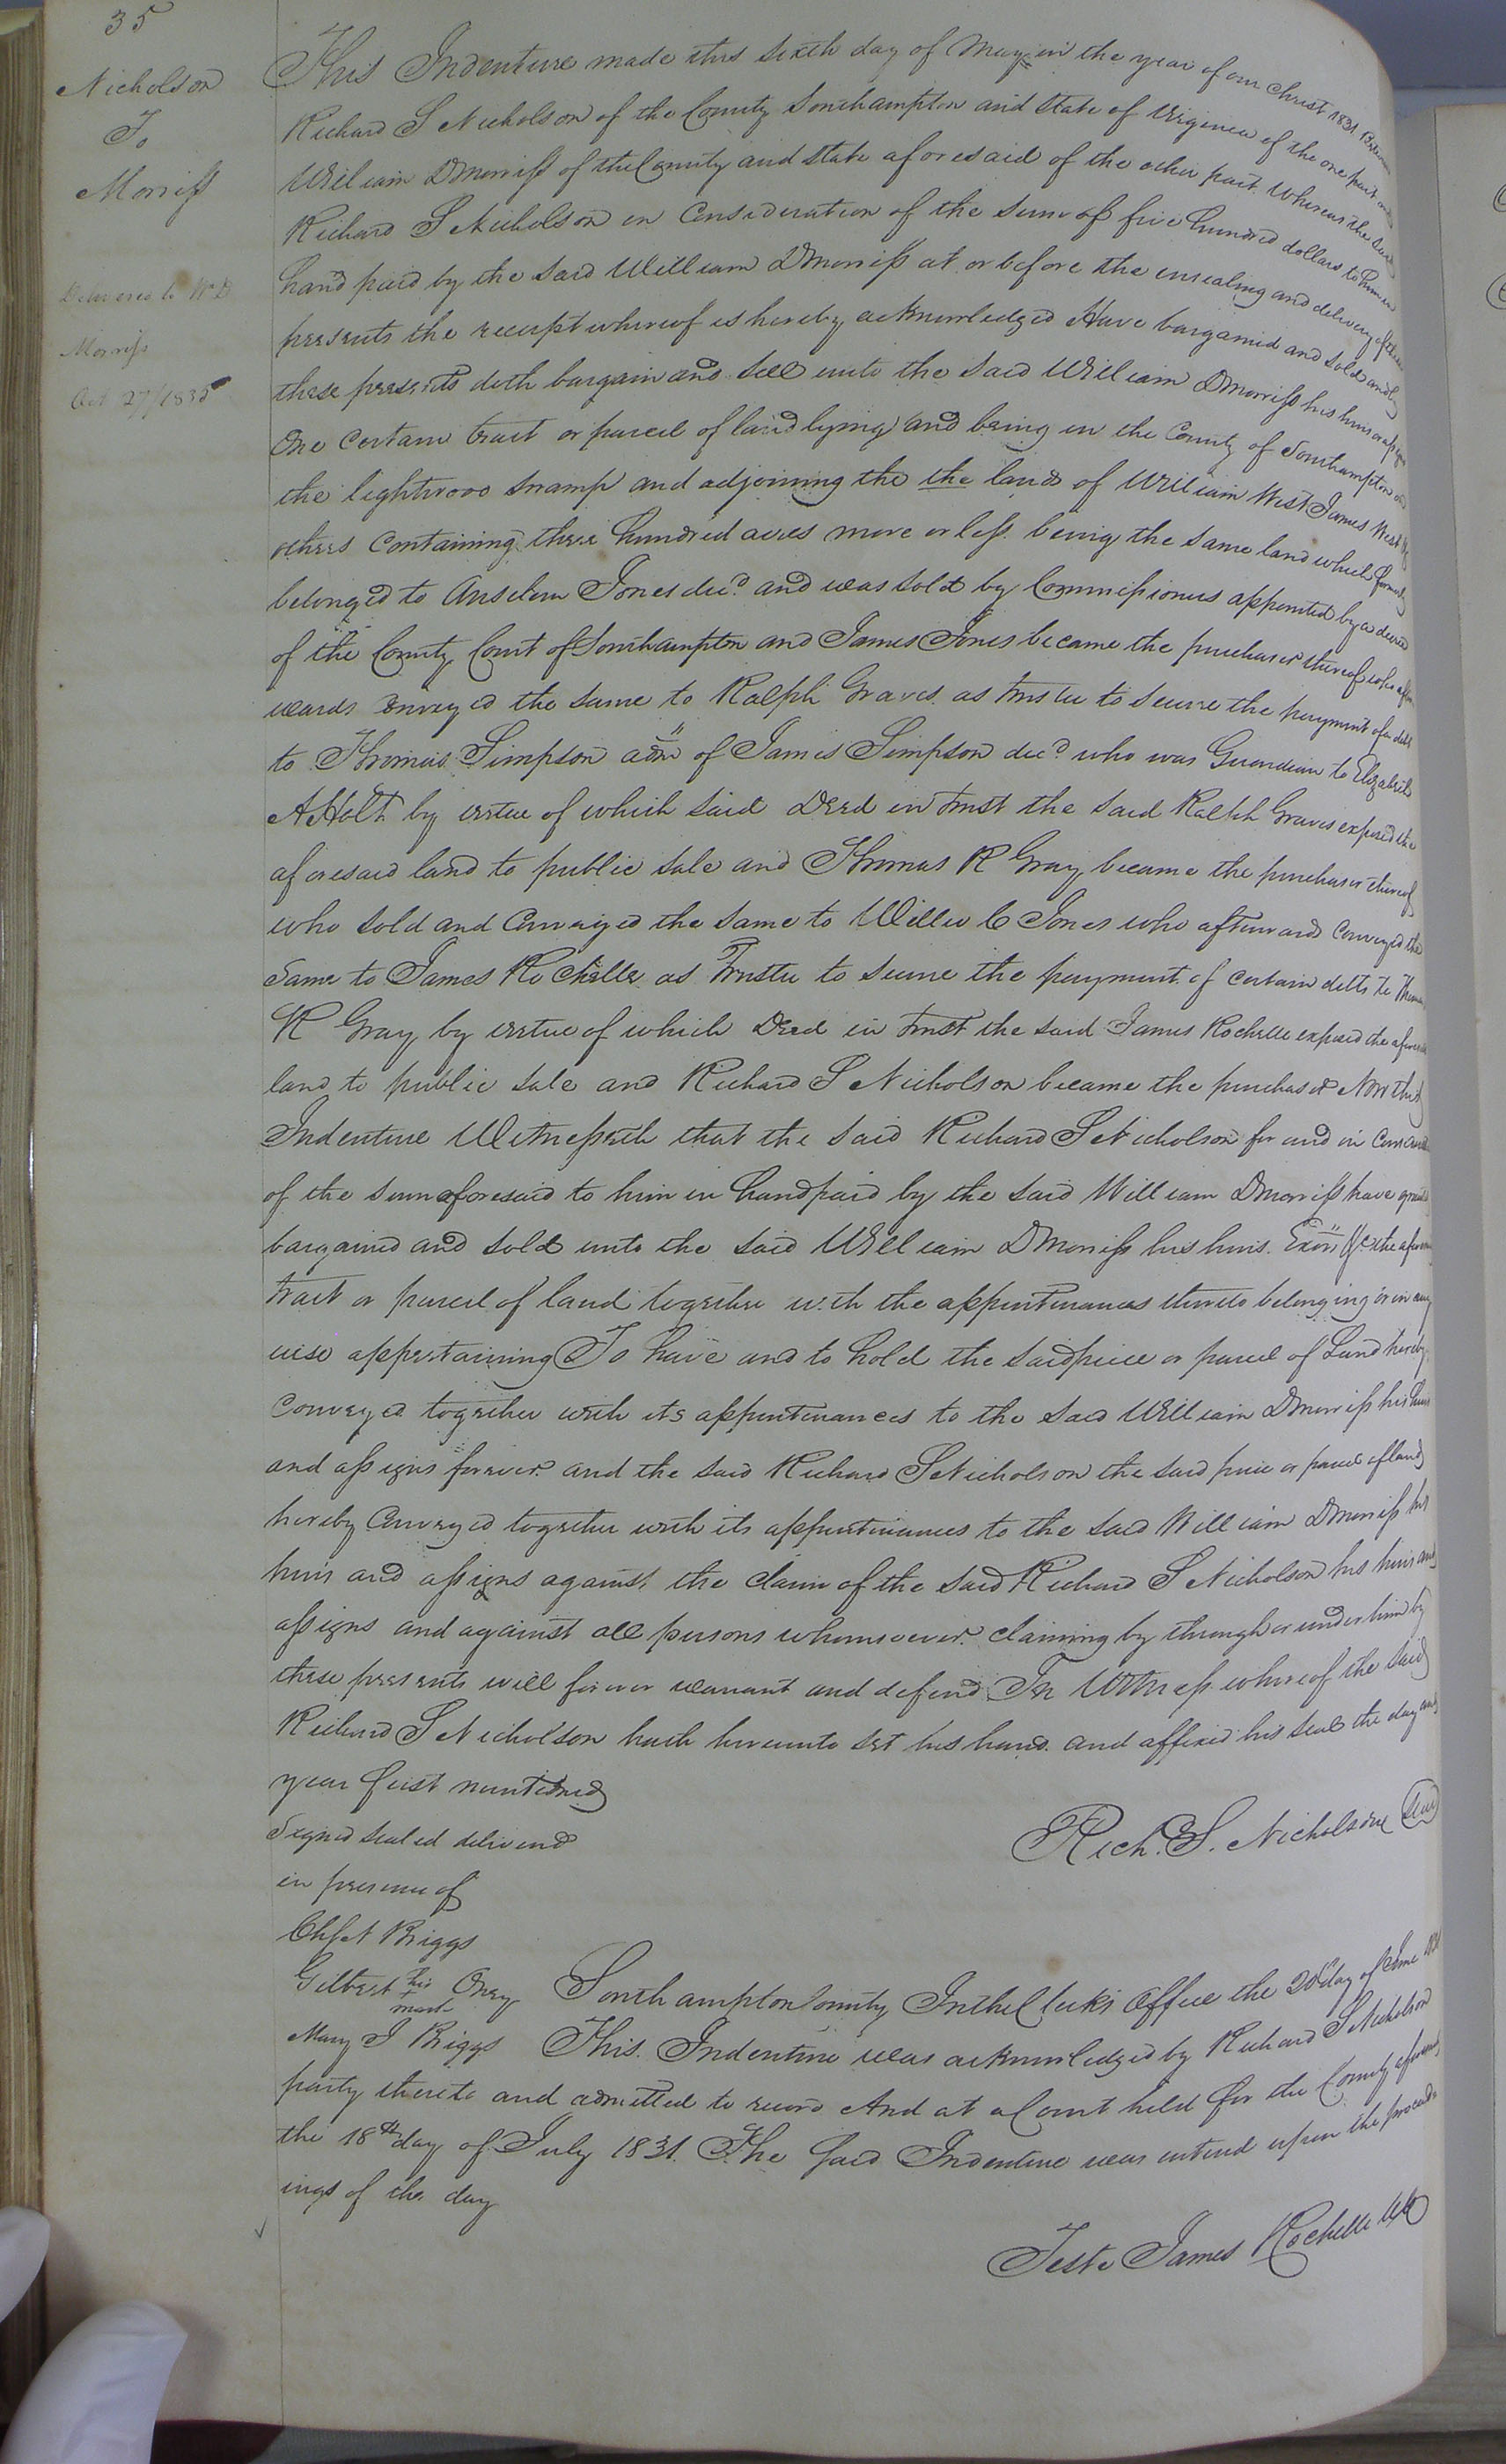 35
Nicholson
To
Morriss
Delivered to Wm D
Morriss
Oct 27/1835
This Indenture made this sixth day of May in the year of our Christ 1831 Between
Richard S Nicholson of the County Southampton and State of Virginia of the one part and
William D Morriss of the County and State aforesaid of the other part. Whereas the said
Richard S Nicholson in Consideration of the sum of five hundred dollars to him in
hand paid by the said William D Morriss at or before the ensealing and delivery of these
presents the receipt whereof is hereby acknowledged Have bargained and sold and by
these presents doth bargain and sell unto the said William D Morriss his heirs or assigns
One certain tract or parcel of land lying and being in the County of Southampton on
the lightwood swamp and adjoining the the lands of William West James West &c
others Containing three hundred acres more or less being the same land which formerly
belonged to Anselem Jones decd and was sold by Commissioners appointed by a decree
of the County Court of Southampton and James Jones became the purchaser thereof who after
wards conveyed the same to Ralph Graves as trustee to secure the payment of a debt
to Thomas Simpson adm of James Simpson decd who was Guardian to Elizabeth
A Holt by virtue of which said Deed in trust the said Ralph Graves exposed the
aforesaid land to public sale and Thomas R Gray became the purchaser thereof
who sold and Conveyed the same to Willie C Jones who afterwards Conveyed the
same to James Rochelle as Trustee to secure the payment of certain debts to Thomas
R Gray by virtue of which Deed in trust the said James Rochelle exposed the aforesaid
land to public sale and Richard S Nicholson became the purchaser Now this
Indenture Witnesseth that the said Richard S Nicholson for and in Consideration
of the sum aforesaid to him in hand paid by the said William D Morriss have granted
bargained and sold unto the said William D Morriss his heirs Exors &c the aforesaid
tract or parcel of land together with the appurtenances thereto belonging or in any
wise appertaining To have and to hold the said piece or parcel of Land hereby
Conveyed together with its appurtenances to the said William D Morriss his heirs
and assigns forever and the said Richard S Nicholson the said piece or parcel of land
hereby Conveyed together with its appurtenances to the said William D Morriss his
heirs and assigns against the claim of the said Richard S Nicholson his heirs and
assigns and against all persons whomsoever claiming by through or under him by
these presents will forever warrant and defend In Witness whereof the said
Richard S Nicholson hath hereunto set his hand and affixed his seal the day and
year first mentioned
Signed sealed delivered
Rich. S. Nicholson Seal
in presence of
Gilbert his
mark
Mary J Briggs
Southampton County In the Clerks Office the 20th day of June 1831
This Indenture was acknowledged by Richard S Nicholson
party thereto and admitted to record And at a Court held for the County aforesaid
the 18th day of July 1831. The said Indenture was entered upon the proceed
ings of the day
Teste James Rochelle